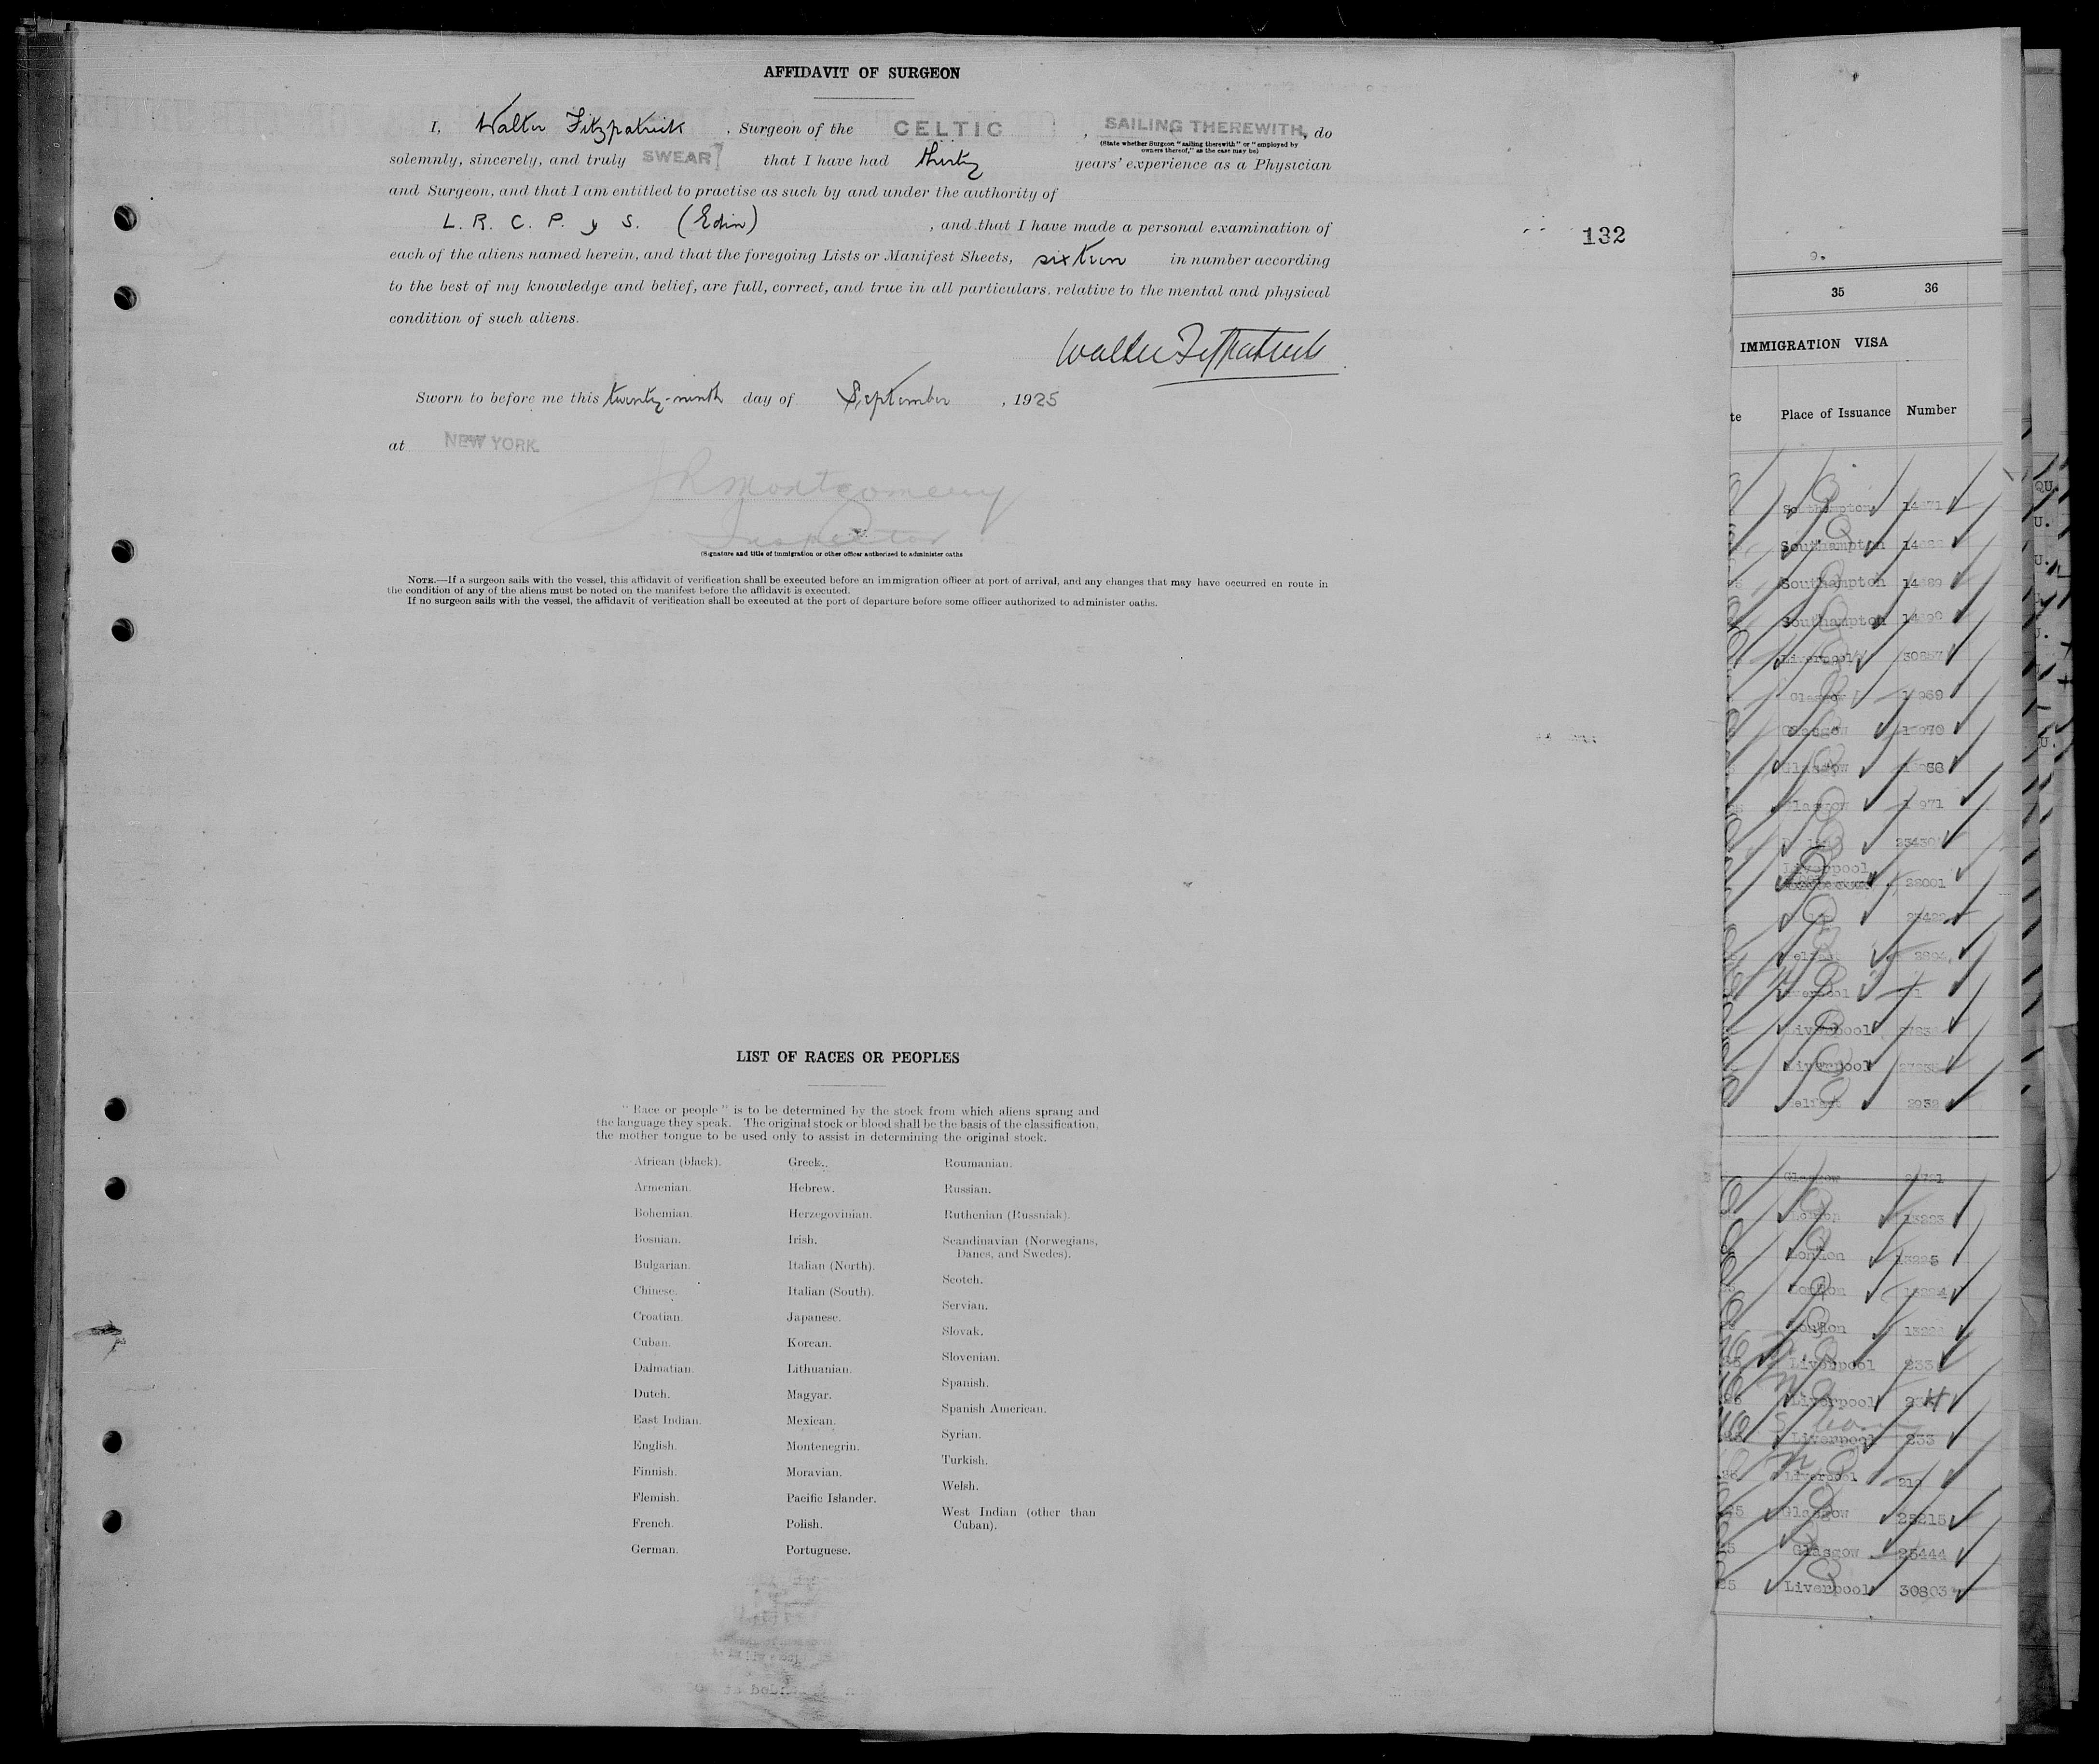 AFFIDAVIT OF SURGEON
I, Walter Fitzpatrick , Surgeon of the CELTIC , SAILING THEREWITH, do
(State whether Surgeon "sailing therewith" or "employed by
owners thereof," as the case may be)
solemnly, sincerely, and truly SWEAR that I have had thirty years' experience as a Physician
and Surgeon, and that I am entitled to practise as such by and under the authority of
L. R. C. P. y S. (Edin) , and that I have made a personal examination of
each of the aliens named herein, and that the foregoing Lists or Manifest Sheets, sixteen in number according
to the best of my knowledge and belief, are full, correct, and true in all particulars, relative to the mental and physical
condition of such aliens.
Walter Fitzpatrick
Sworn to before me this twenty-ninth day of September , 1925
at NEW YORK.
JR Montgomery
Inspector
(Signature and title of immigration or other officer authorized to administer oaths
NOTE.—If a surgeon sails with the vessel, this affidavit of verification shall be executed before an immigration officer at port of arrival, and any changes that may have occurred en route in
the condition of any of the aliens must be noted on the manifest before the affidavit is executed.
If no surgeon sails with the vessel, the affidavit of verification shall be executed at the port of departure before some officer authorized to administer oaths.
132
LIST OF RACES OR PEOPLES
"Race or people" is to be determined by the stock from which aliens sprang and
the language they speak. The original stock or blood shall be the basis of the classification,
the mother tongue to be used only to assist in determining the original stock.
African (black).
Armenian.
Bohemian.
Bosnian.
Bulgarian.
Chinese.
Croatian.
Cuban.
Dalmatian.
Dutch.
East Indian.
English.
Finnish.
Flemish.
French.
German.
Greek.
Hebrew.
Herzegovinian.
Irish.
Italian (North).
Italian (South).
Japanese.
Korean.
Lithuanian.
Magyar.
Mexican.
Montenegrin.
Moravian.
Pacific Islander.
Polish.
Portuguese.
Roumanian.
Russian.
Ruthenian (Russniak).
Scandinavian (Norwegians,
Danes, and Swedes).
Scotch.
Servian.
Slovak.
Slovenian.
Spanish.
Spanish American.
Syrian.
Turkish.
Welsh.
West Indian (other than
Cuban).
35 36
IMMIGRATION VISA
Place of Issuance Number
Southampton
Southampton
Southampton
Southampton
Liverpool
Glasgow
Glasgow
Glasgow
Glasgow
Liverpool
28001
Liverpool
Liverpool
Liverpool
Glasgow
London
London
London
London
Liverpool
Liverpool
Liverpool 233
Liverpool
Glasgow 25215
Glasgow 25444
Liverpool 30803